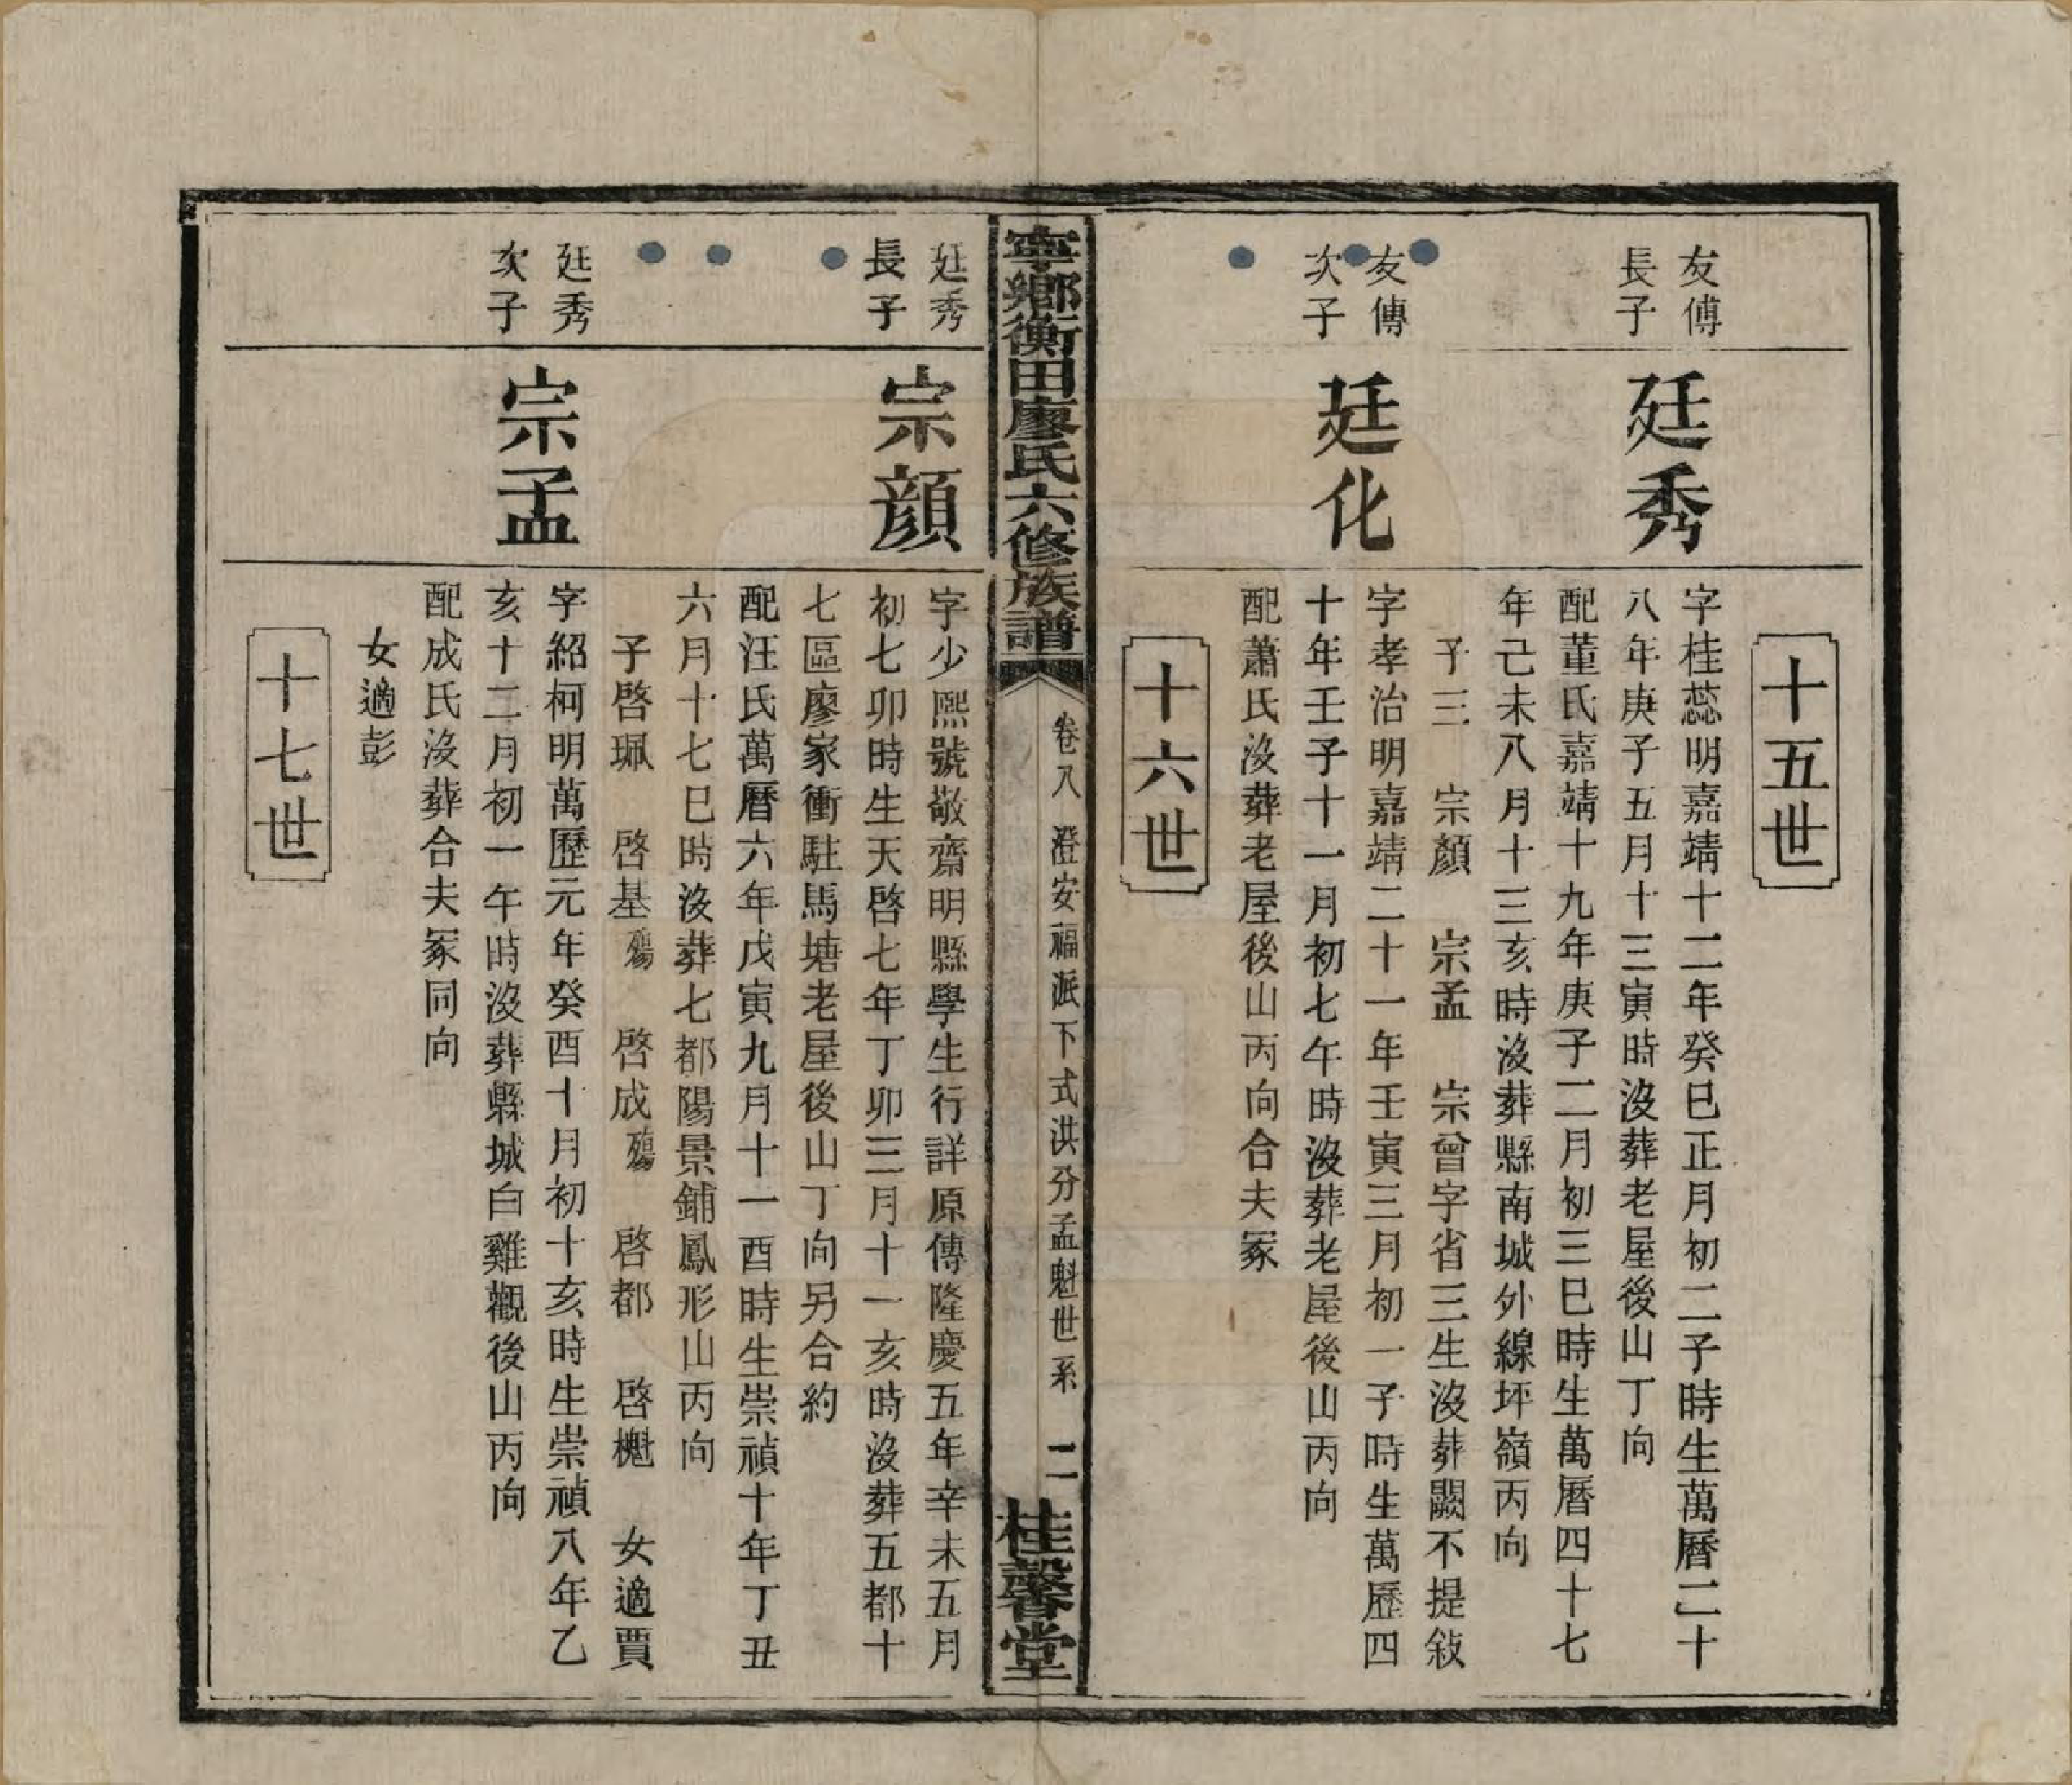 十五世
友傅
長子
廷秀
字桂蕊明嘉靖十二年癸巳正月初二子時生萬曆二十
八年庚子五月十三寅時沒葬老屋後山丁向
配董氏嘉靖十九年庚子二月初三巳時生萬曆四十七
年己未八月十三亥時沒葬縣南城外線坪嶺丙向
子三 宗顏 宗孟 宗曾字省三生沒葬闕不提敍
友傳
次子
廷化
字孝治明嘉靖二十一年壬寅三月初一子時生萬歷四
十年壬子十一月初七午時沒葬老屋後山丙向
配蕭氏沒葬老屋後山丙向合夫冢
十六世
寧鄉衡田廖氏六修族譜
卷八 澄安福派下式洪分孟魁世系 二
桂馨堂
廷秀
長子
宗顔
字少熙號敬齋明縣學生行詳原傳隆慶五年辛未五月
初七卯時生天啓七年丁卯三月十一亥時沒葬五都十
七區廖家衝駐馬塘老屋後山丁向另合約
配汪氏萬曆六年戊寅九月十一酉時生崇禎十年丁丑
六月十七巳時沒葬七都陽景鋪鳳形山丙向
子啓珮 啓基殤 啓成殤 啓都 啓櫆 女適賈
廷秀
次子
宗孟
字紹柯明萬歷元年癸酉十月初十亥時生崇禎八年乙
亥十二月初一午時沒葬縣城白雞觀後山丙向
配成氏沒葬合夫冢同向
女適彭
十七世